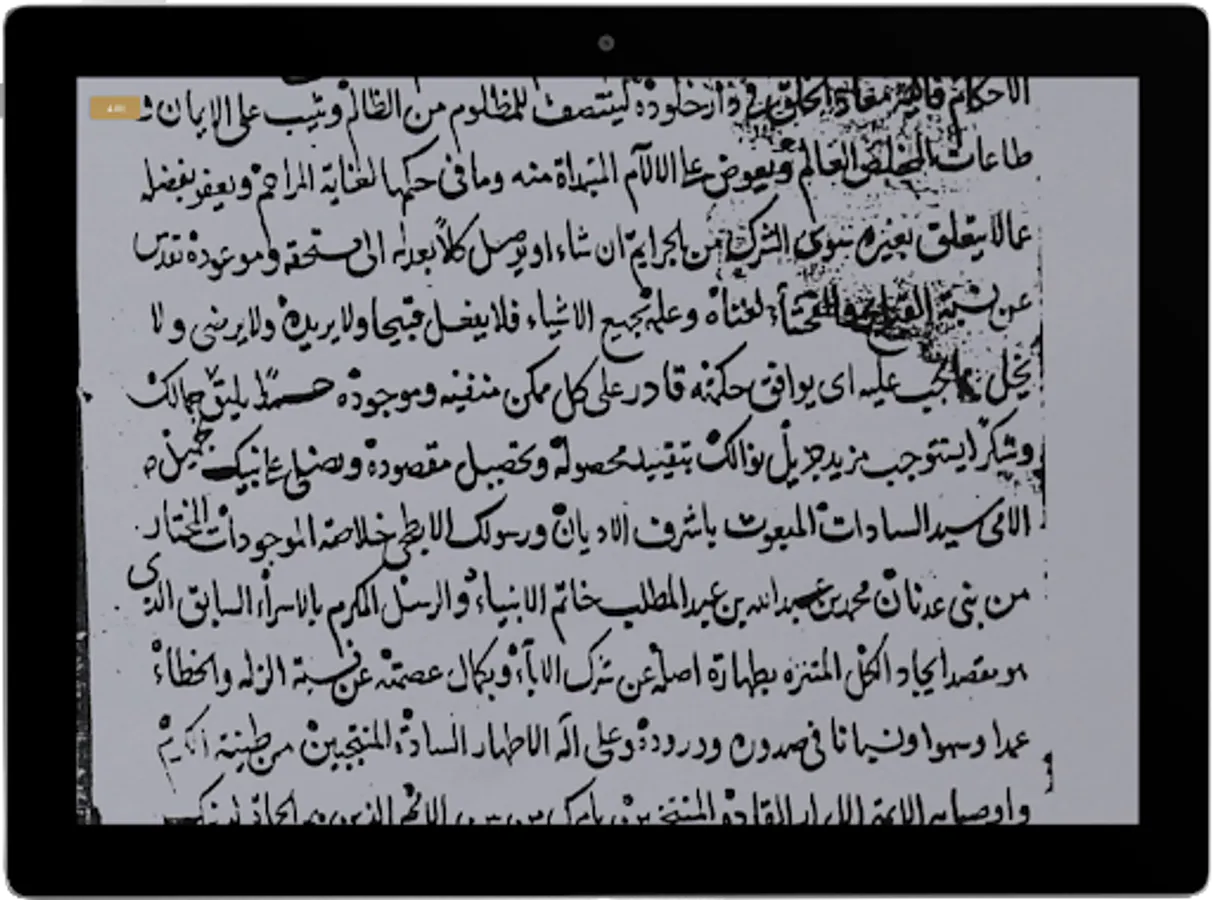 الاحكام في دار خلوده لينتصف للمظلوم من الظالم ويثيب على الايمان
طاعات العالم ويعوض على الالام المبتداة منه وما في حكمها لعناية المراحم ويعفو بفضله
عما لا يتعلق بغيره سوى الشرك من الجرايم ان شاء او يوصل كلا بعدله الى مستحقه وموعوده تقدس
عن نسبة لغناه وعلمه بجميع الاشياء فلا يفعل قبيحا ولا يريده ولا يرضى ولا
يخل بما يجب عليه اى يوافق حكمته قادر على كل ممكن منفيه وموجوده يليق بجمالك
وشكرا يستوجب مزيد جزيل نوالك بتقييد محصوله وتحصيل مقصوده ونصلى على نبيك
الامى سيد السادات المبعوث باشرف الاديان ورسولك الابطحى خلاصة الموجودات المختار
من بنى عدنان محمد بن عبد الله بن عبد المطلب خاتم الانبياء والرسل المكرم بالاسراء السابق الذى
هو مقصد ايجاد الكل المتنزه بطهارة اصله عن شرك الاباء وبكمال عصمته عن نسبة الزلة والخطاء
عمدا وسهوا ونسيانا في صدوره ووروده وعلى آله الاطهار السادة المنتجبين من طينة الكريم
واوصيائه الايمة الابرار القادة المنتخبين